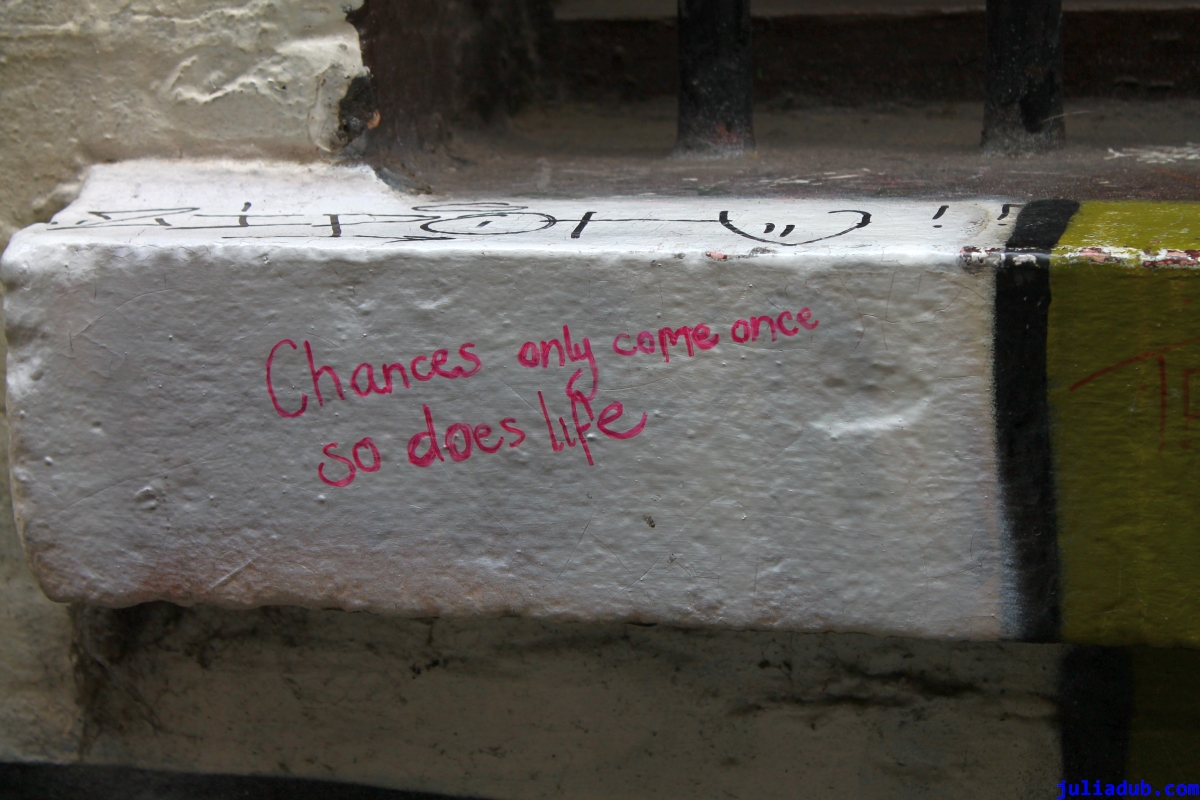 Chances only come once
so does life
juliadub.com